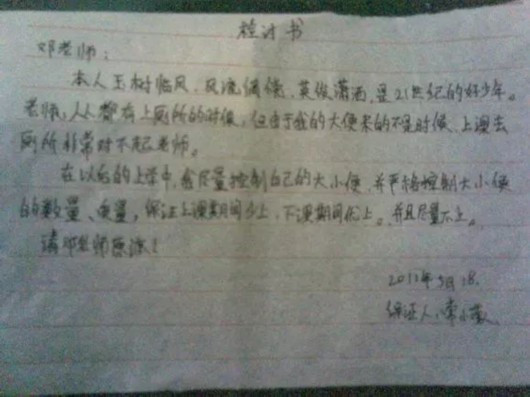 检讨书
邓老师：
本人玉树临风、风流倜傥、英俊潇洒，是21世纪的好少年。
老师，人人都有上厕所的时候，但由于我的大便来的不是时候、上课去
厕所非常对不起老师。
在以后的上学中，会尽量控制自己的大小便，并严格控制大小便
的数量、质量，保证上课期间少上，下课期间优上。并且尽量不上。
请邓老师原谅！
2011年5月18.
保证人：常小